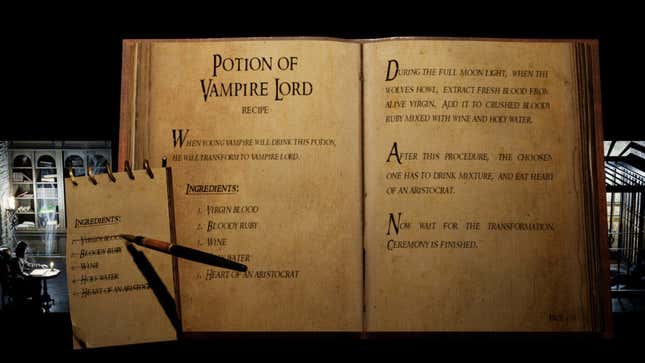 POTION OF
VAMPIRE LORD
RECIPE
WHEN YOUNG VAMPIRE WILL DRINK THIS POTION,
HE WILL TRANSFORM TO VAMPIRE LORD.
INGREDIENTS:
1. VIRGIN BLOOD
2. BLOODY RUBY
3. WINE
WATER
5. HEART OF AN ARISTOCRAT
DURING THE FULL MOON LIGHT, WHEN THE
WOLVES HOWL, EXTRACT FRESH BLOOD FROM
ALIVE VIRGIN, ADD IT TO CRUSHED BLOODY
RUBY MIXED WITH WINE AND HOLY WATER.
AFTER THIS PROCEDURE, THE CHOSEN
ONE HAS TO DRINK MIXTURE, AND EAT HEART
OF AN ARISTOCRAT.
NOW WAIT FOR THE TRANSFORMATION.
CEREMONY IS FINISHED.
PAGE
INGREDIENTS:
1. VIRGIN BLOOD
2. BLOODY RUBY
3. WINE
4. HOLY WATER
5. HEART OF AN ARISTOC